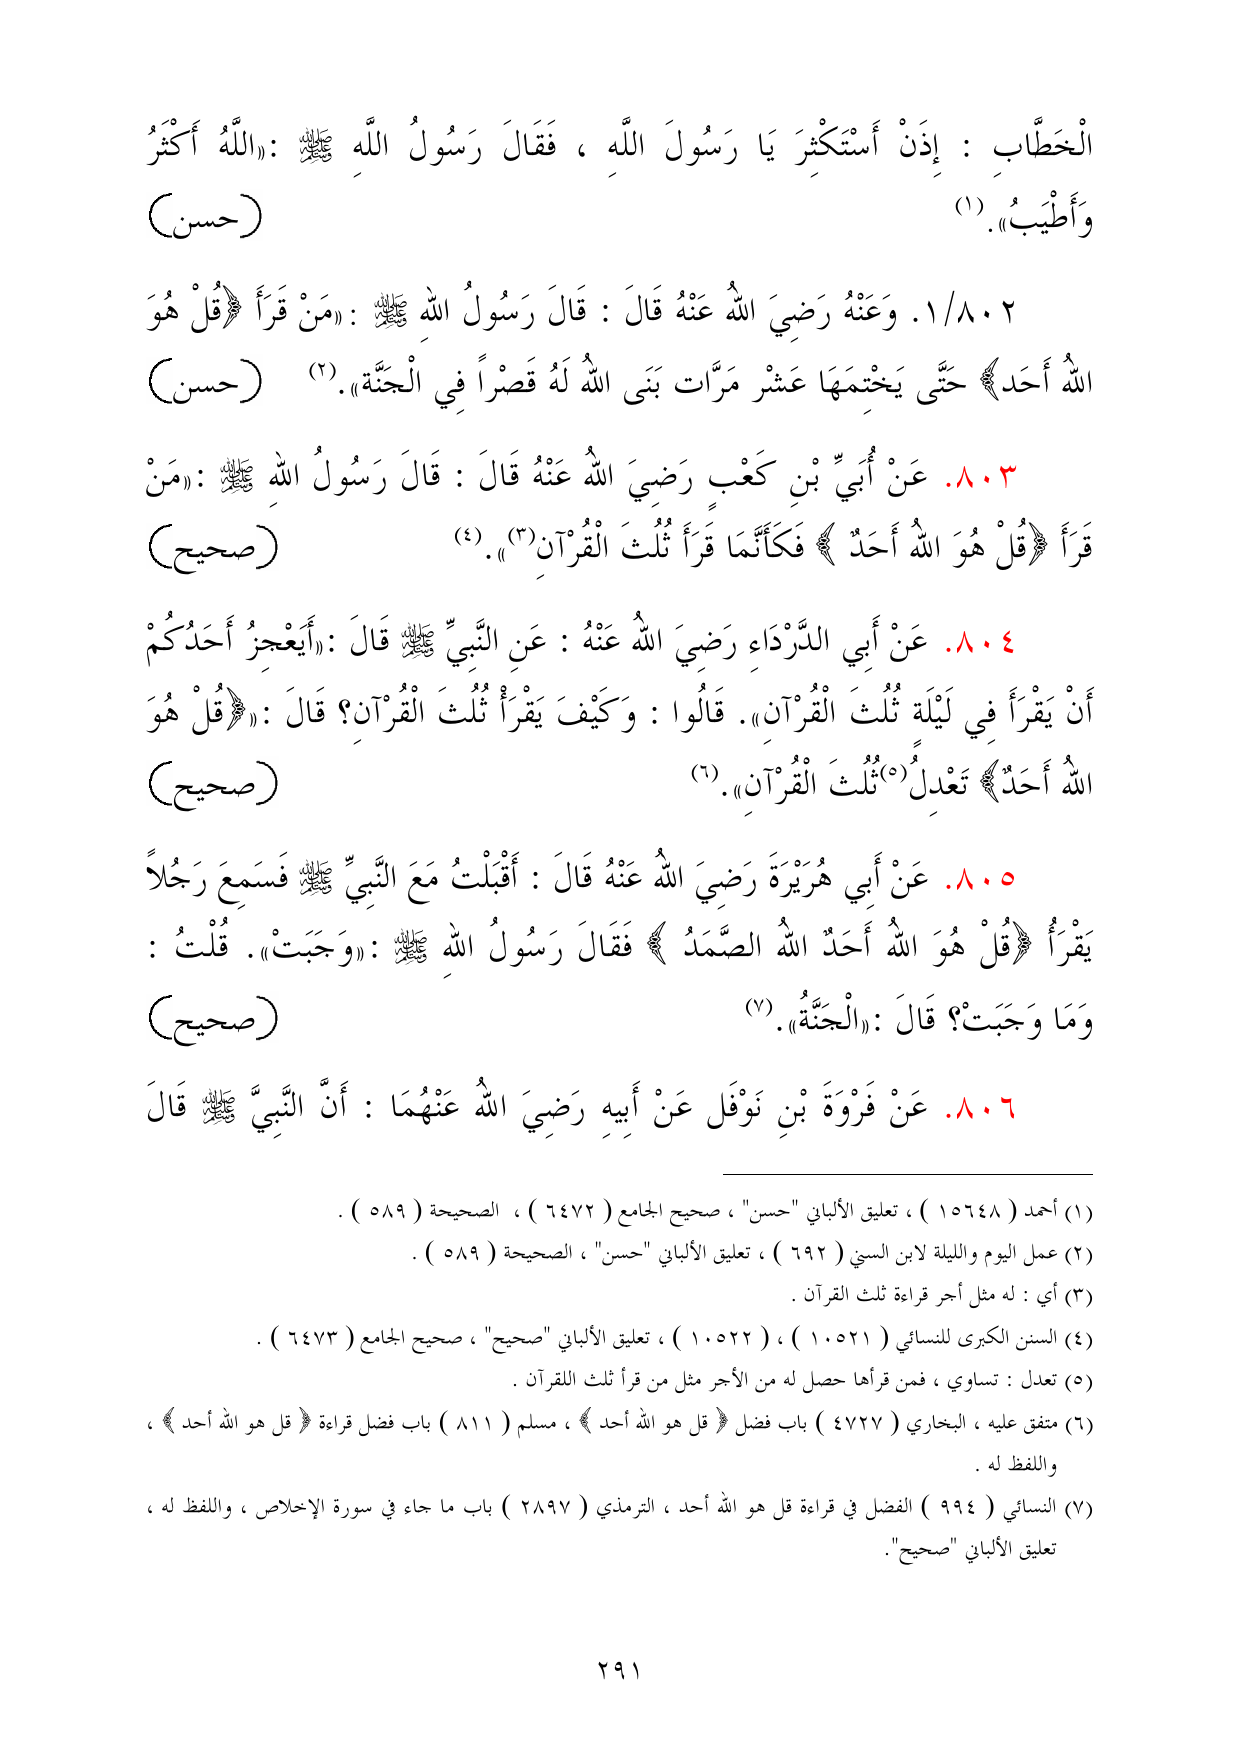 الْخَطَّابِ : إِذَنْ أَسْتَكْثِرَ يَا رَسُولَ اللَّهِ ، فَقَالَ رَسُولُ اللَّهِ ﷺ :«اللَّهُ أَكْثَرُ
وَأَطْيَبُ».(١) (حسن)
١/٨٠٢. وَعَنْهُ رَضِيَ اللهُ عَنْهُ قَالَ : قَالَ رَسُولُ اللهِ ﷺ :«مَنْ قَرَأَ ﴿قُلْ هُوَ
اللهُ أَحَد﴾ حَتَّى يَخْتِمَهَا عَشْر مَرَّات بَنَى اللهُ لَهُ قَصْراً فِي الْجَنَّة».(٢) (حسن)
٨٠٣. عَنْ أُبَيِّ بْنِ كَعْبٍ رَضِيَ اللهُ عَنْهُ قَالَ : قَالَ رَسُولُ اللهِ ﷺ :«مَنْ
قَرَأَ ﴿قُلْ هُوَ اللهُ أَحَدٌ ﴾ فَكَأَنَّمَا قَرَأَ ثُلُثَ الْقُرْآنِ(٣)».(٤) (صحيح)
٨٠٤. عَنْ أَبِي الدَّرْدَاءِ رَضِيَ اللهُ عَنْهُ : عَنِ النَّبِيِّ ﷺ قَالَ :«أَيَعْجِزُ أَحَدُكُمْ
أَنْ يَقْرَأَ فِي لَيْلَةٍ ثُلُثَ الْقُرْآنِ». قَالُوا : وَكَيْفَ يَقْرَأْ ثُلُثَ الْقُرْآنِ؟ قَالَ :«﴿قُلْ هُوَ
اللهُ أَحَدٌ﴾ تَعْدِلُ(٥)ثُلُثَ الْقُرْآنِ».(٦) (صحيح)
٨٠٥. عَنْ أَبِي هُرَيْرَةَ رَضِيَ اللهُ عَنْهُ قَالَ : أَقْبَلْتُ مَعَ النَّبِيِّ ﷺ فَسَمِعَ رَجُلاً
يَقْرَأُ ﴿قُلْ هُوَ اللهُ أَحَدٌ اللهُ الصَّمَدُ ﴾ فَقَالَ رَسُولُ اللهِ ﷺ :«وَجَبَتْ». قُلْتُ :
وَمَا وَجَبَتْ؟ قَالَ :«الْجَنَّةُ».(٧) (صحيح)
٨٠٦. عَنْ فَرْوَةَ بْنِ نَوْفَلِ عَنْ أَبِيهِ رَضِيَ اللهُ عَنْهُمَا : أَنَّ النَّبِيَّ ﷺ قَالَ
(١) أحمد ( ١٥٦٤٨ ) ، تعليق الألباني "حسن" ، صحيح الجامع ( ٦٤٧٢ ) ، الصحيحة ( ٥٨٩ ) .
(٢) عمل اليوم والليلة لابن السني ( ٦٩٢ ) ، تعليق الألباني "حسن" ، الصحيحة ( ٥٨٩ ) .
(٣) أي : له مثل أجر قراءة ثلث القرآن .
(٤) السنن الكبرى للنسائي ( ١٠٥٢١ ) ، ( ١٠٥٢٢ ) ، تعليق الألباني "صحيح" ، صحيح الجامع ( ٦٤٧٣ ) .
(٥) تعدل : تساوي ، فمن قرأها حصل له من الأجر مثل من قرأ ثلث اللقرآن .
(٦) متفق عليه ، البخاري ( ٤٧٢٧ ) باب فضل ﴿ قل هو الله أحد ﴾ ، مسلم ( ٨١١ ) باب فضل قراءة ﴿ قل هو الله أحد ﴾ ،
واللفظ له .
(٧) النسائي ( ٩٩٤ ) الفضل في قراءة قل هو الله أحد ، الترمذي ( ٢٨٩٧ ) باب ما جاء في سورة الإخلاص ، واللفظ له ،
تعليق الألباني "صحيح".
٢٩١